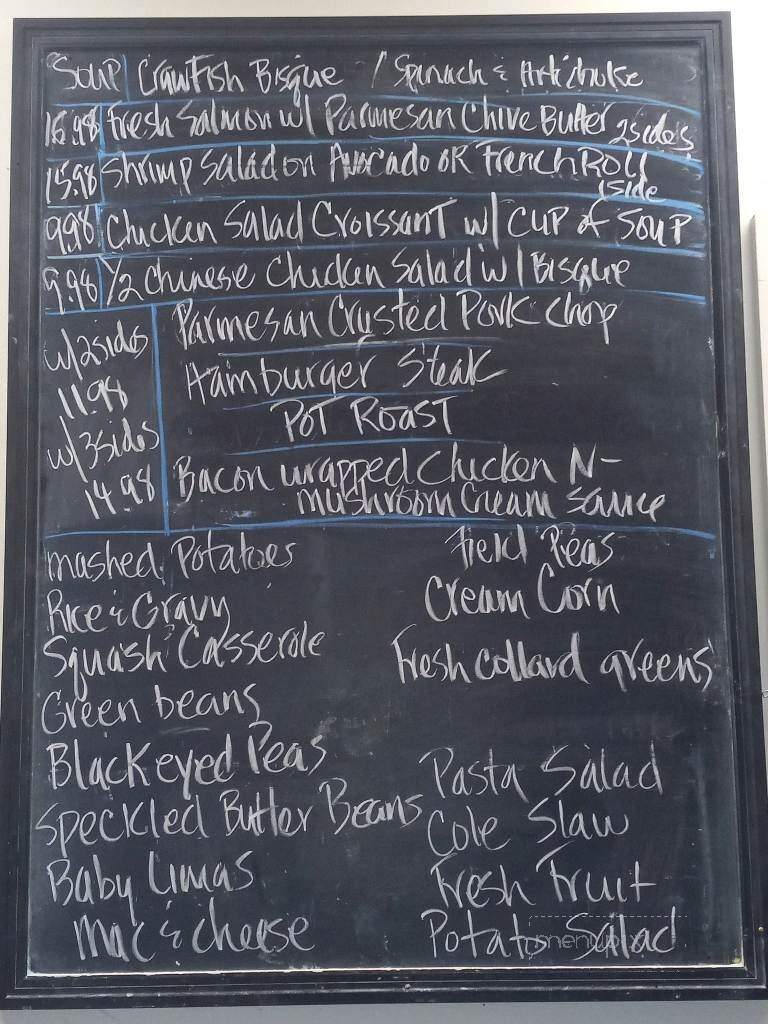 Soup Crawfish Bisque / Spinach & Artichoke
16.98 Fresh Salmon w/ Parmesan Chive Butter 2sides
15.98 Shrimp Salad on Avocado OR French Roll 1side
9.98 Chicken Salad Croissant w/ cup of Soup
9.98 1/2 Chinese Chicken Salad w/ Bisque
w/2sides
11.98
w/3sides
14.98
Parmesan Crusted Pork Chop
Hamburger Steak
Pot Roast
Bacon wrapped Chicken N-
Mushroom Cream Sauce
Mashed Potatoes
Rice & Gravy
Squash Casserole
Green beans
Black eyed Peas
Speckled Butter Beans
Baby Limas
Mac & cheese
Field Peas
Cream Corn
Fresh collard greens
Pasta Salad
Cole Slaw
Fresh Fruit
Potato Salad